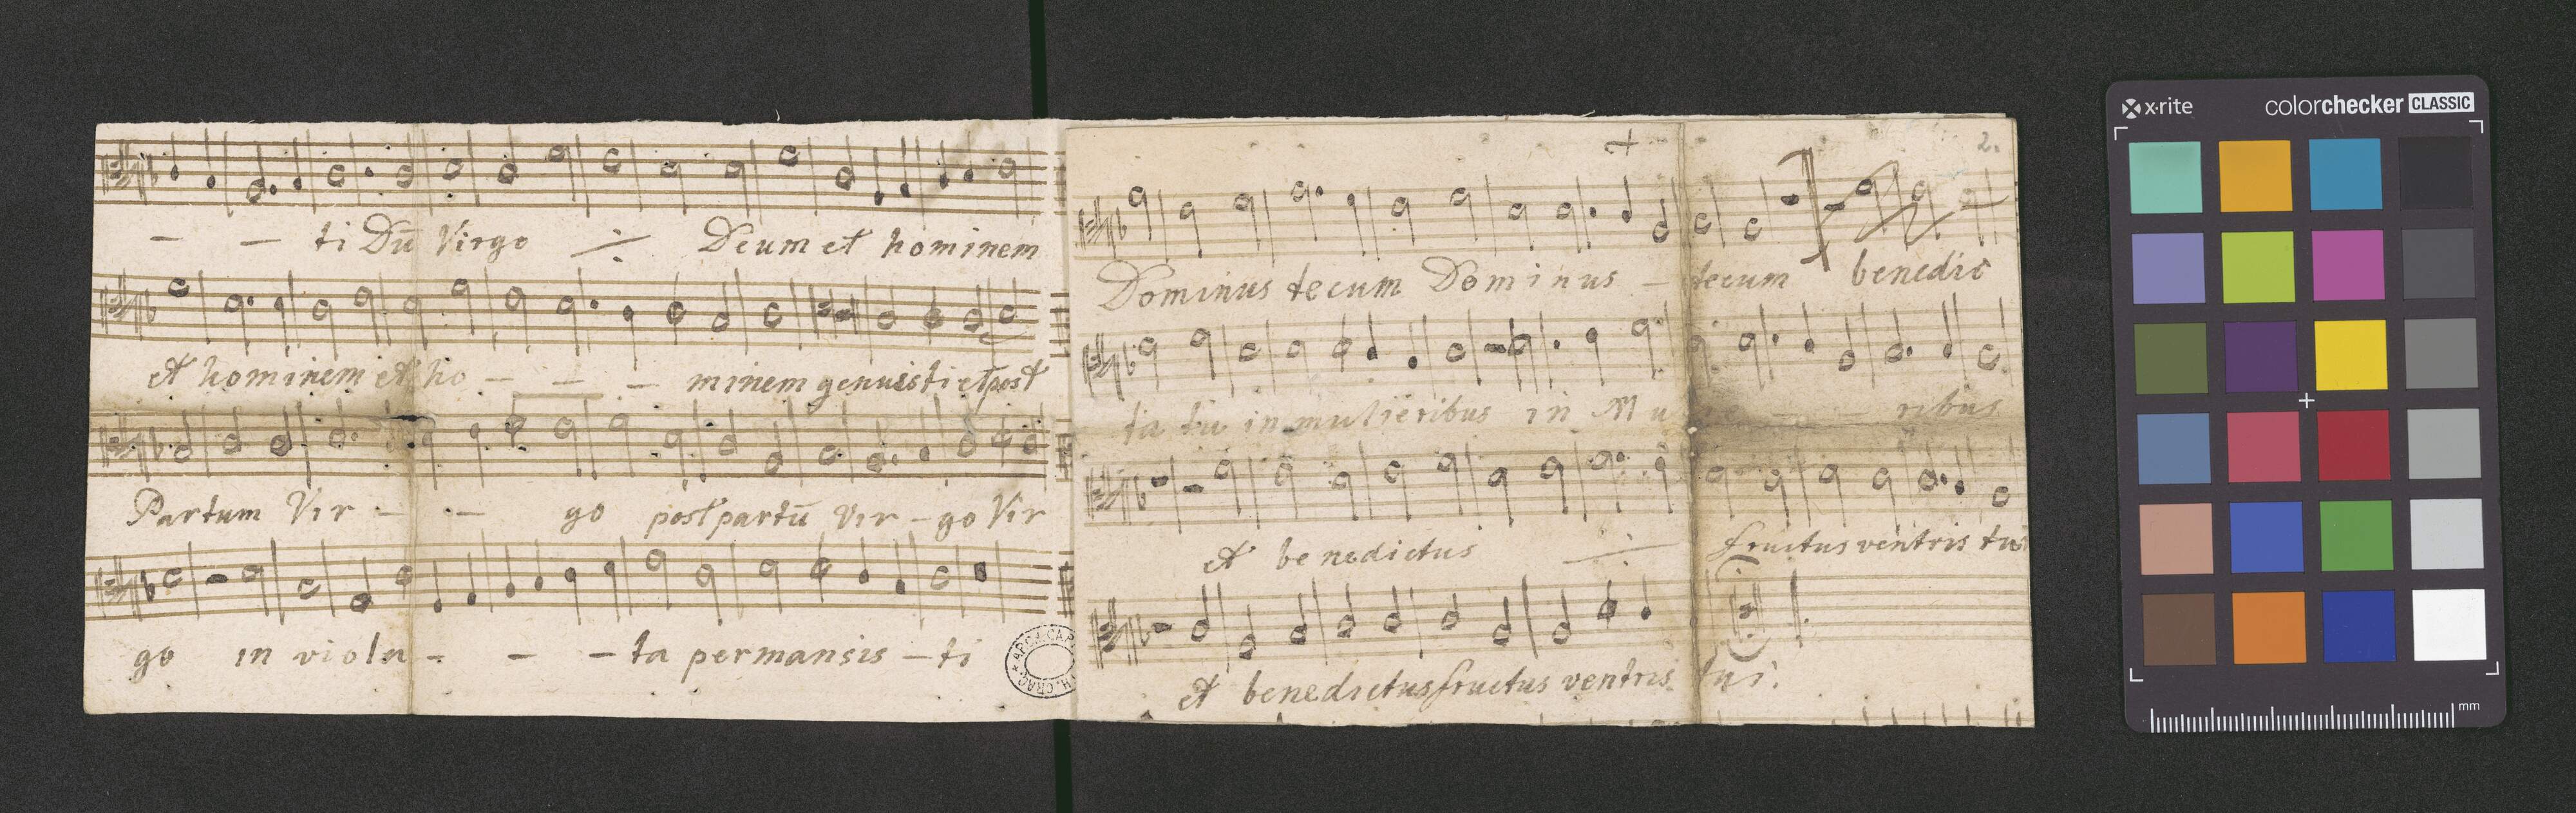 — — ti Dū Virgo ∻ Deum et hominem
et hominem et ho — — — minem genuisti et post
Partum Vir — — go post partū Vir – go Vir
go in viola – – – ta permansis – ti
2.
Dominus tecum Dominus – tecum benedic
ta tu in mulieribus in Mu — ribus
et benedictus ∻ fructus ventris tui
et benedictus fructus ventris tui:
x·rite colorchecker CLASSIC
mm